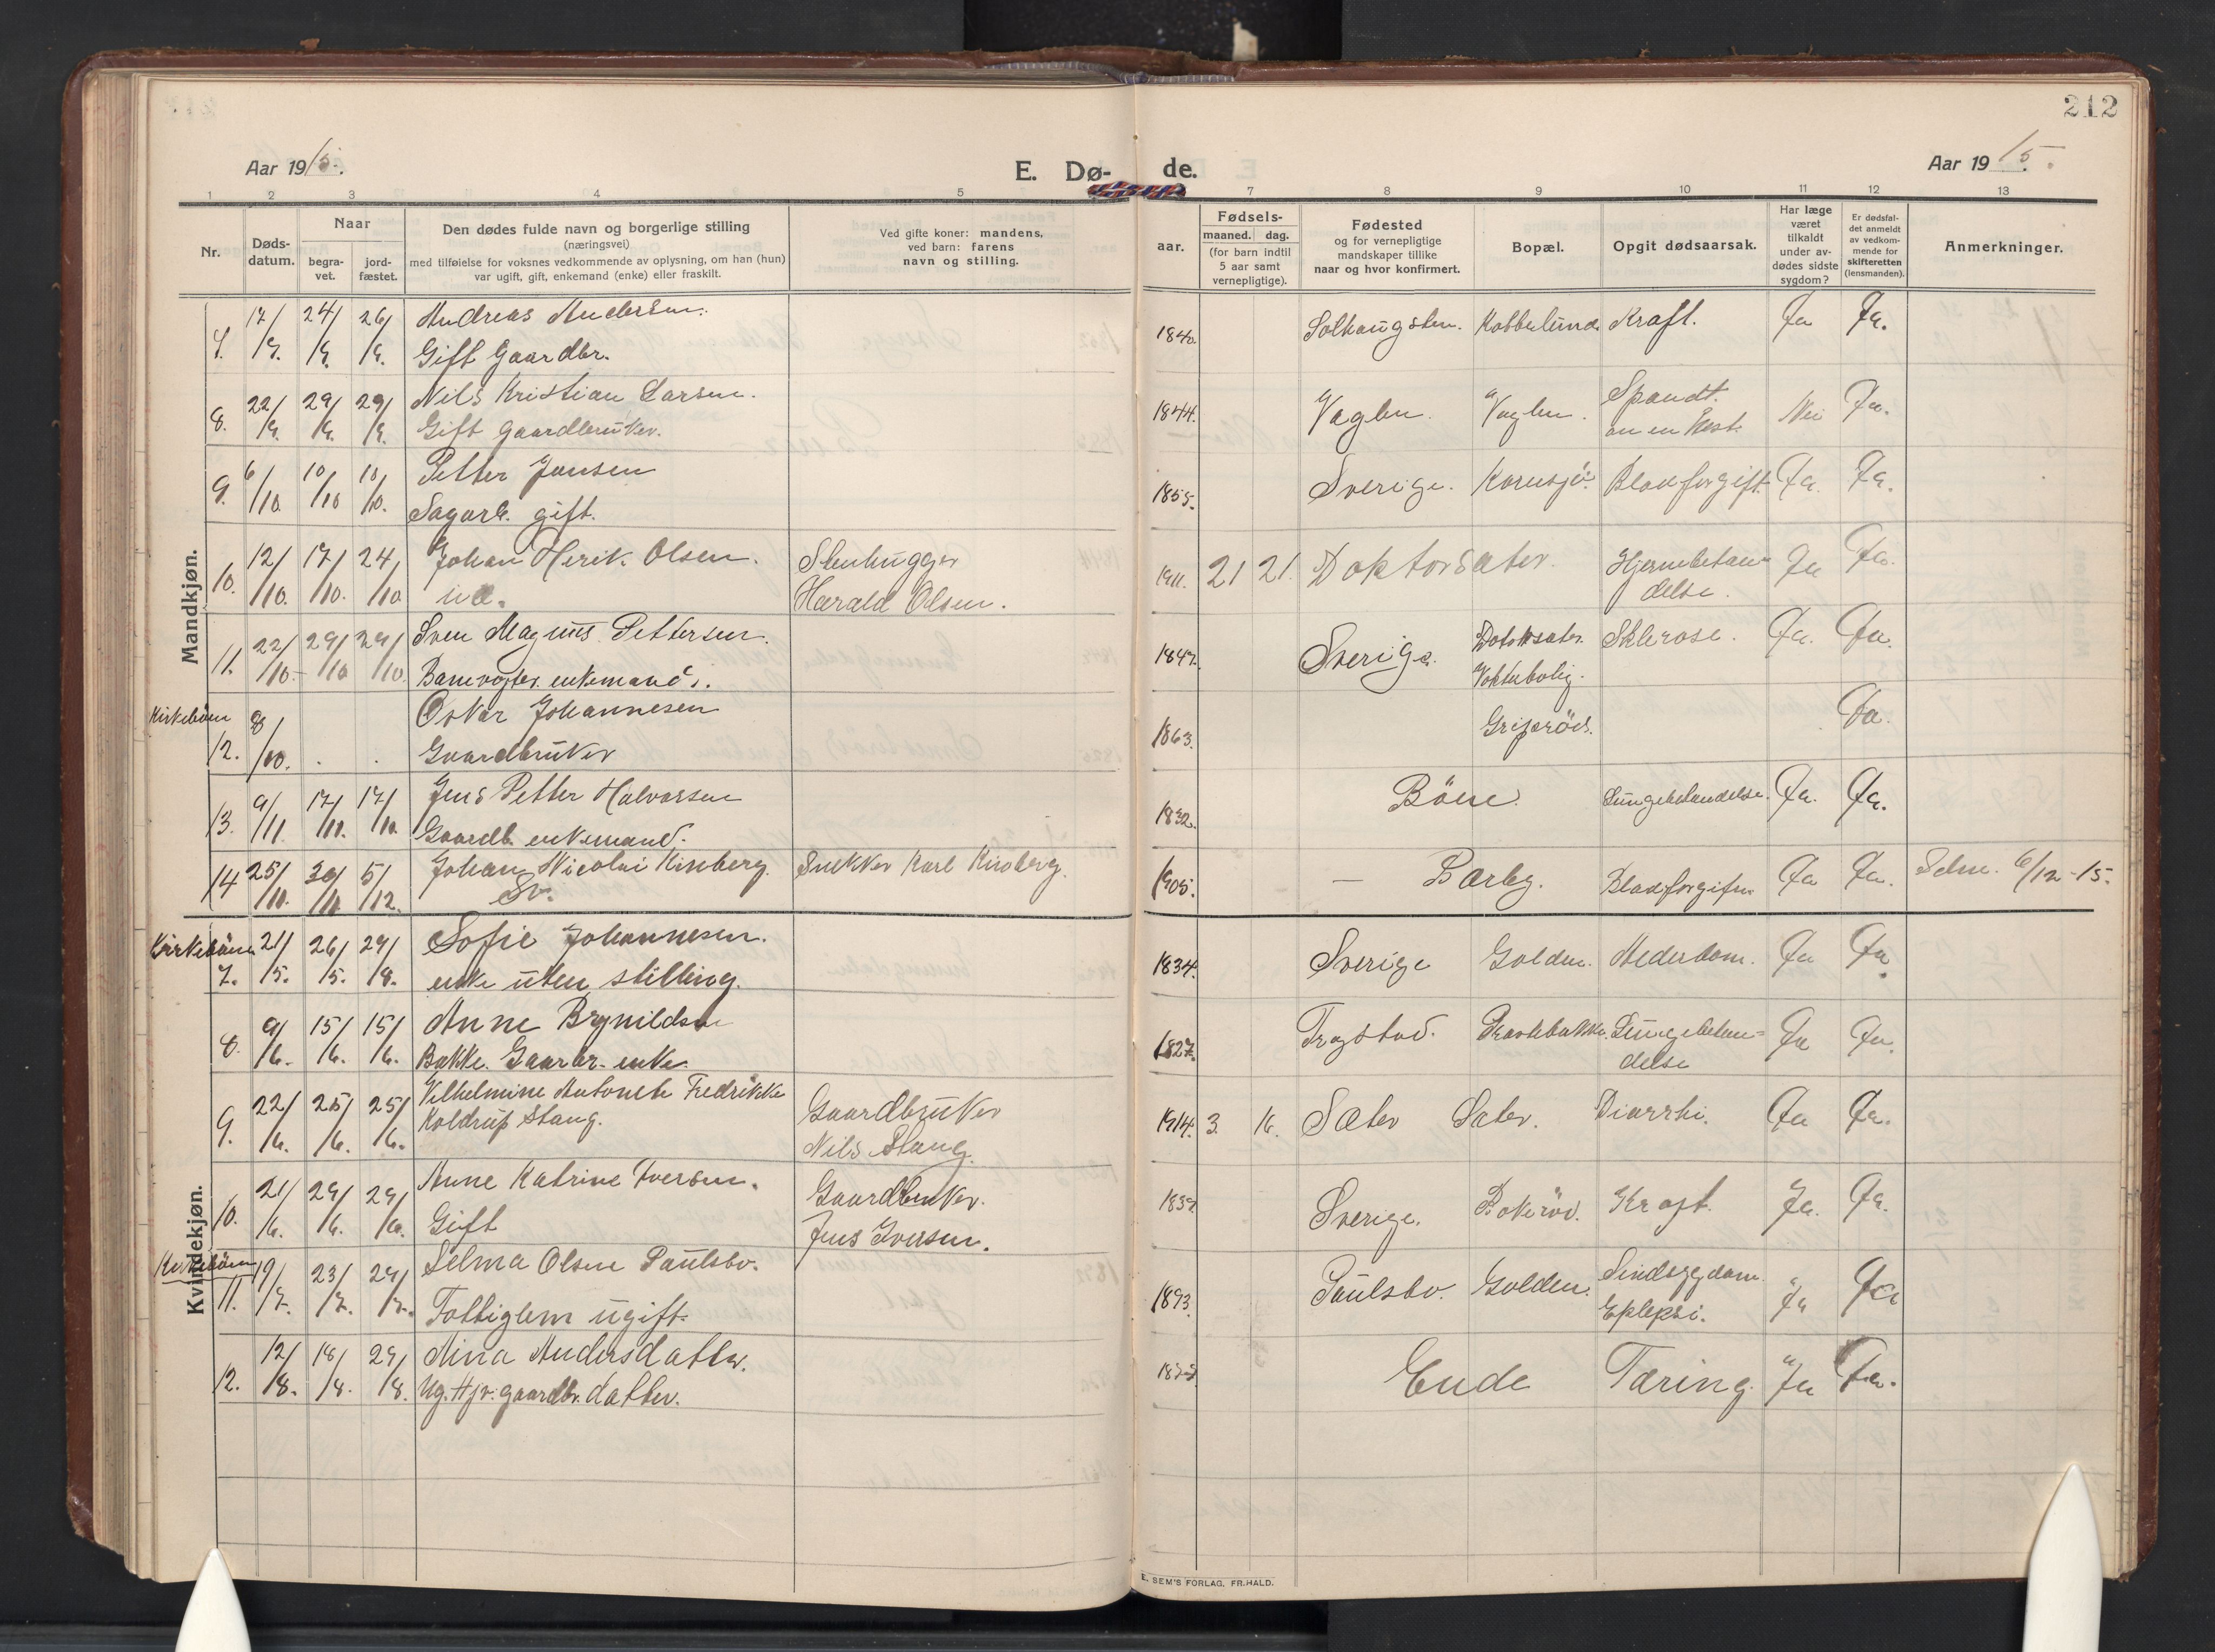 212
Aar 1915.
E. Dø-
de.
Aar 1915.
1 2 3 4 5 7 8 9 10 11 12 13
Nr.
Døds-
datum.
Naar
begra-
vet.
jord-
fæstet.
Den dødes fulde navn og borgerlige stilling
(næringsvei)
med tilføielse for voksnes vedkommende av oplysning, om han (hun)
var ugift, gift, enkemand (enke) eller fraskilt.
Ved gifte koner: mandens,
ved barn: farens
navn og stilling.
aar.
Fødsels-
maaned. dag.
(for barn indtil
5 aar samt
vernepligtige).
Fødested
og for vernepligtige
mandskaper tillike
naar og hvor konfirmert.
Bopæl.
Opgit dødsaarsak.
Har læge
været
tilkaldt
under av-
dødes sidste
sygdom?
Er dødsfal-
det anmeldt
av vedkom-
mende for
skifteretten
(lensmanden).
Anmerkninger.
Mandkjøn.
17/9. 24/9. 26/9. Andreas Andersen. 1840. Kraft. Ja Ja.
Gift Gaardbr.
8. 22/9. 29/9. 29/9. Nils Kristian Larsen. 1844. Vaglen. Vaglen. Spændt Nei Ja.
Gift gaardbruker. av en Hest.
9. 6/10. 10/10 10/10. Petter Jansen 1855. Sverige. Kornsjø. Blodforgift. Ja. Ja.
Sagarb. gift.
10. 12/10. 17/10. 24/10 Johan Henrik Olsen. Stenhugger 1911. 21 21. Doktorsæter. Hjernebetæn Ja Ja.
Harald Olsen. delse.
11. 22/10. 29/10 29/10. Sven Magnus Pettersen. 1847. Sverige. Sklerose. Ja. Ja.
Banevogter. enkemand. Vokterbolig.
Kirkebøen
12. 8/10. Oskar Johannesen 1863. Ja.
Gaardbruker
13. 9/11. 17/11. 17/11. Jens Petter Halvorsen 1832. Böen. Lungebetændelse. Ja. Ja.
Gaardb. enkemand.
14 25/11. 30/11 5/12. Johan Nicolai Kinberg. Snekker Karl Kinberg. 1905. — Barby. Blodforgiftn. Ja Ja. 6/12-15.
Kvindekjøn.
Kirkebøen
7. 21/5. 26/5. 29/8. Sofie Johannesen. 1834. Sverige Golden. Alderdom. Ja Ja.
enke uten stilling.
8. 9/6. 15/6. 15/6. Anne Brynildsen 1827. Trøgstad. Prestebakke. Lungebetæn= Ja Ja.
Bakke. Gaarbr. enke delse
9. 22/6. 25/6. 25/6. Vilhelmine Antonette Fredrikke Gaardbruker 1914. 3. 16. Sæter Sæter. Diarrhi. Ja Ja.
Koldrup Stang. Nils Stang.
10. 21/6. 29/6. 29/6. Anne Katrine Iversen. Gaardbruker. 1839 Sverige. Bokeröd. Kraft. Ja. Ja.
Gift Jens Iversen.
Kirkebøen
11. 19/7. 23/7. 29/7. Selma Olsen Paulsbo. 1893. Paulsbo. Golden. Sindssygdom. Ja Ja
Fattiglem ugift. Eplepsi.
12. 12/8. 18/8. 29/8. Nina Andersdatter. Ende Tæring. Ja Ja.
Ug. Hjv. gaardbr. datter.
E. SEM'S FORLAG, FR.HALD.